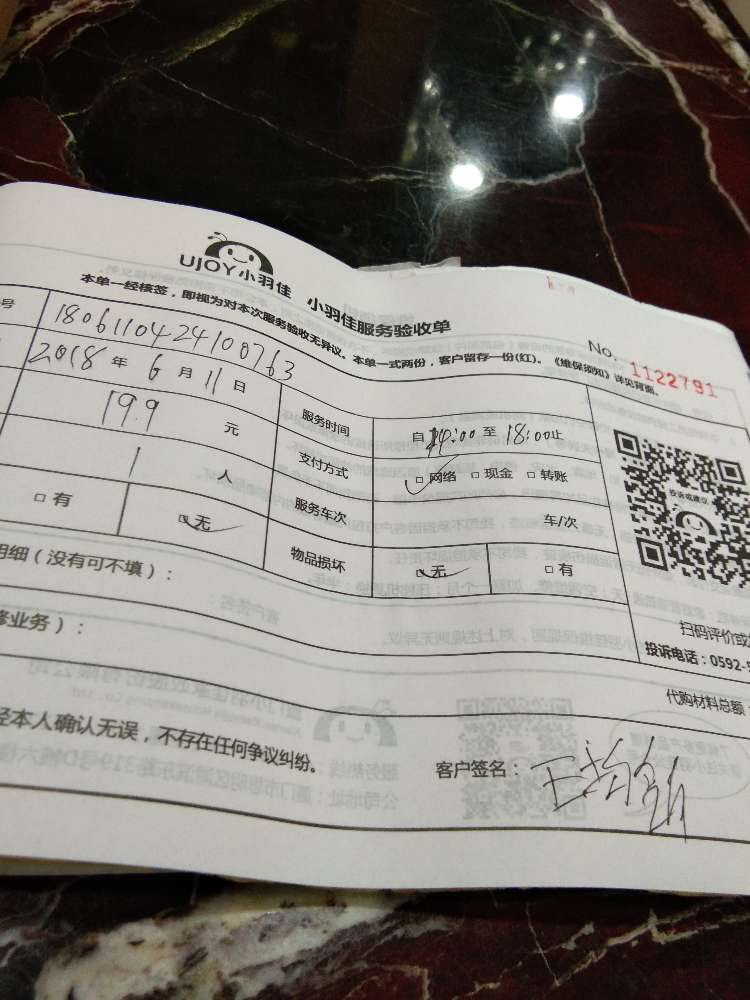 UJOY小羽佳 小羽佳服务验收单
本单一经核签，即视为对本次服务验收无异议。本单一式两份，客户留存一份(红)。《维保须知》详见背面。
No. 1122791
号 1806110424100763
2018 年 6 月 11 日 服务时间 自 14:00 至 18:00止
19.9 元 支付方式 □网络 □现金 □转账
1 人 服务车次 车/次
□有 □无 物品损坏 □无 □有
投诉或建议
明细（没有可不填）：
修业务）：
扫码评价或
投诉电话：0592-5
代购材料总额：
经本人确认无误，不存在任何争议纠纷。
客户签名：